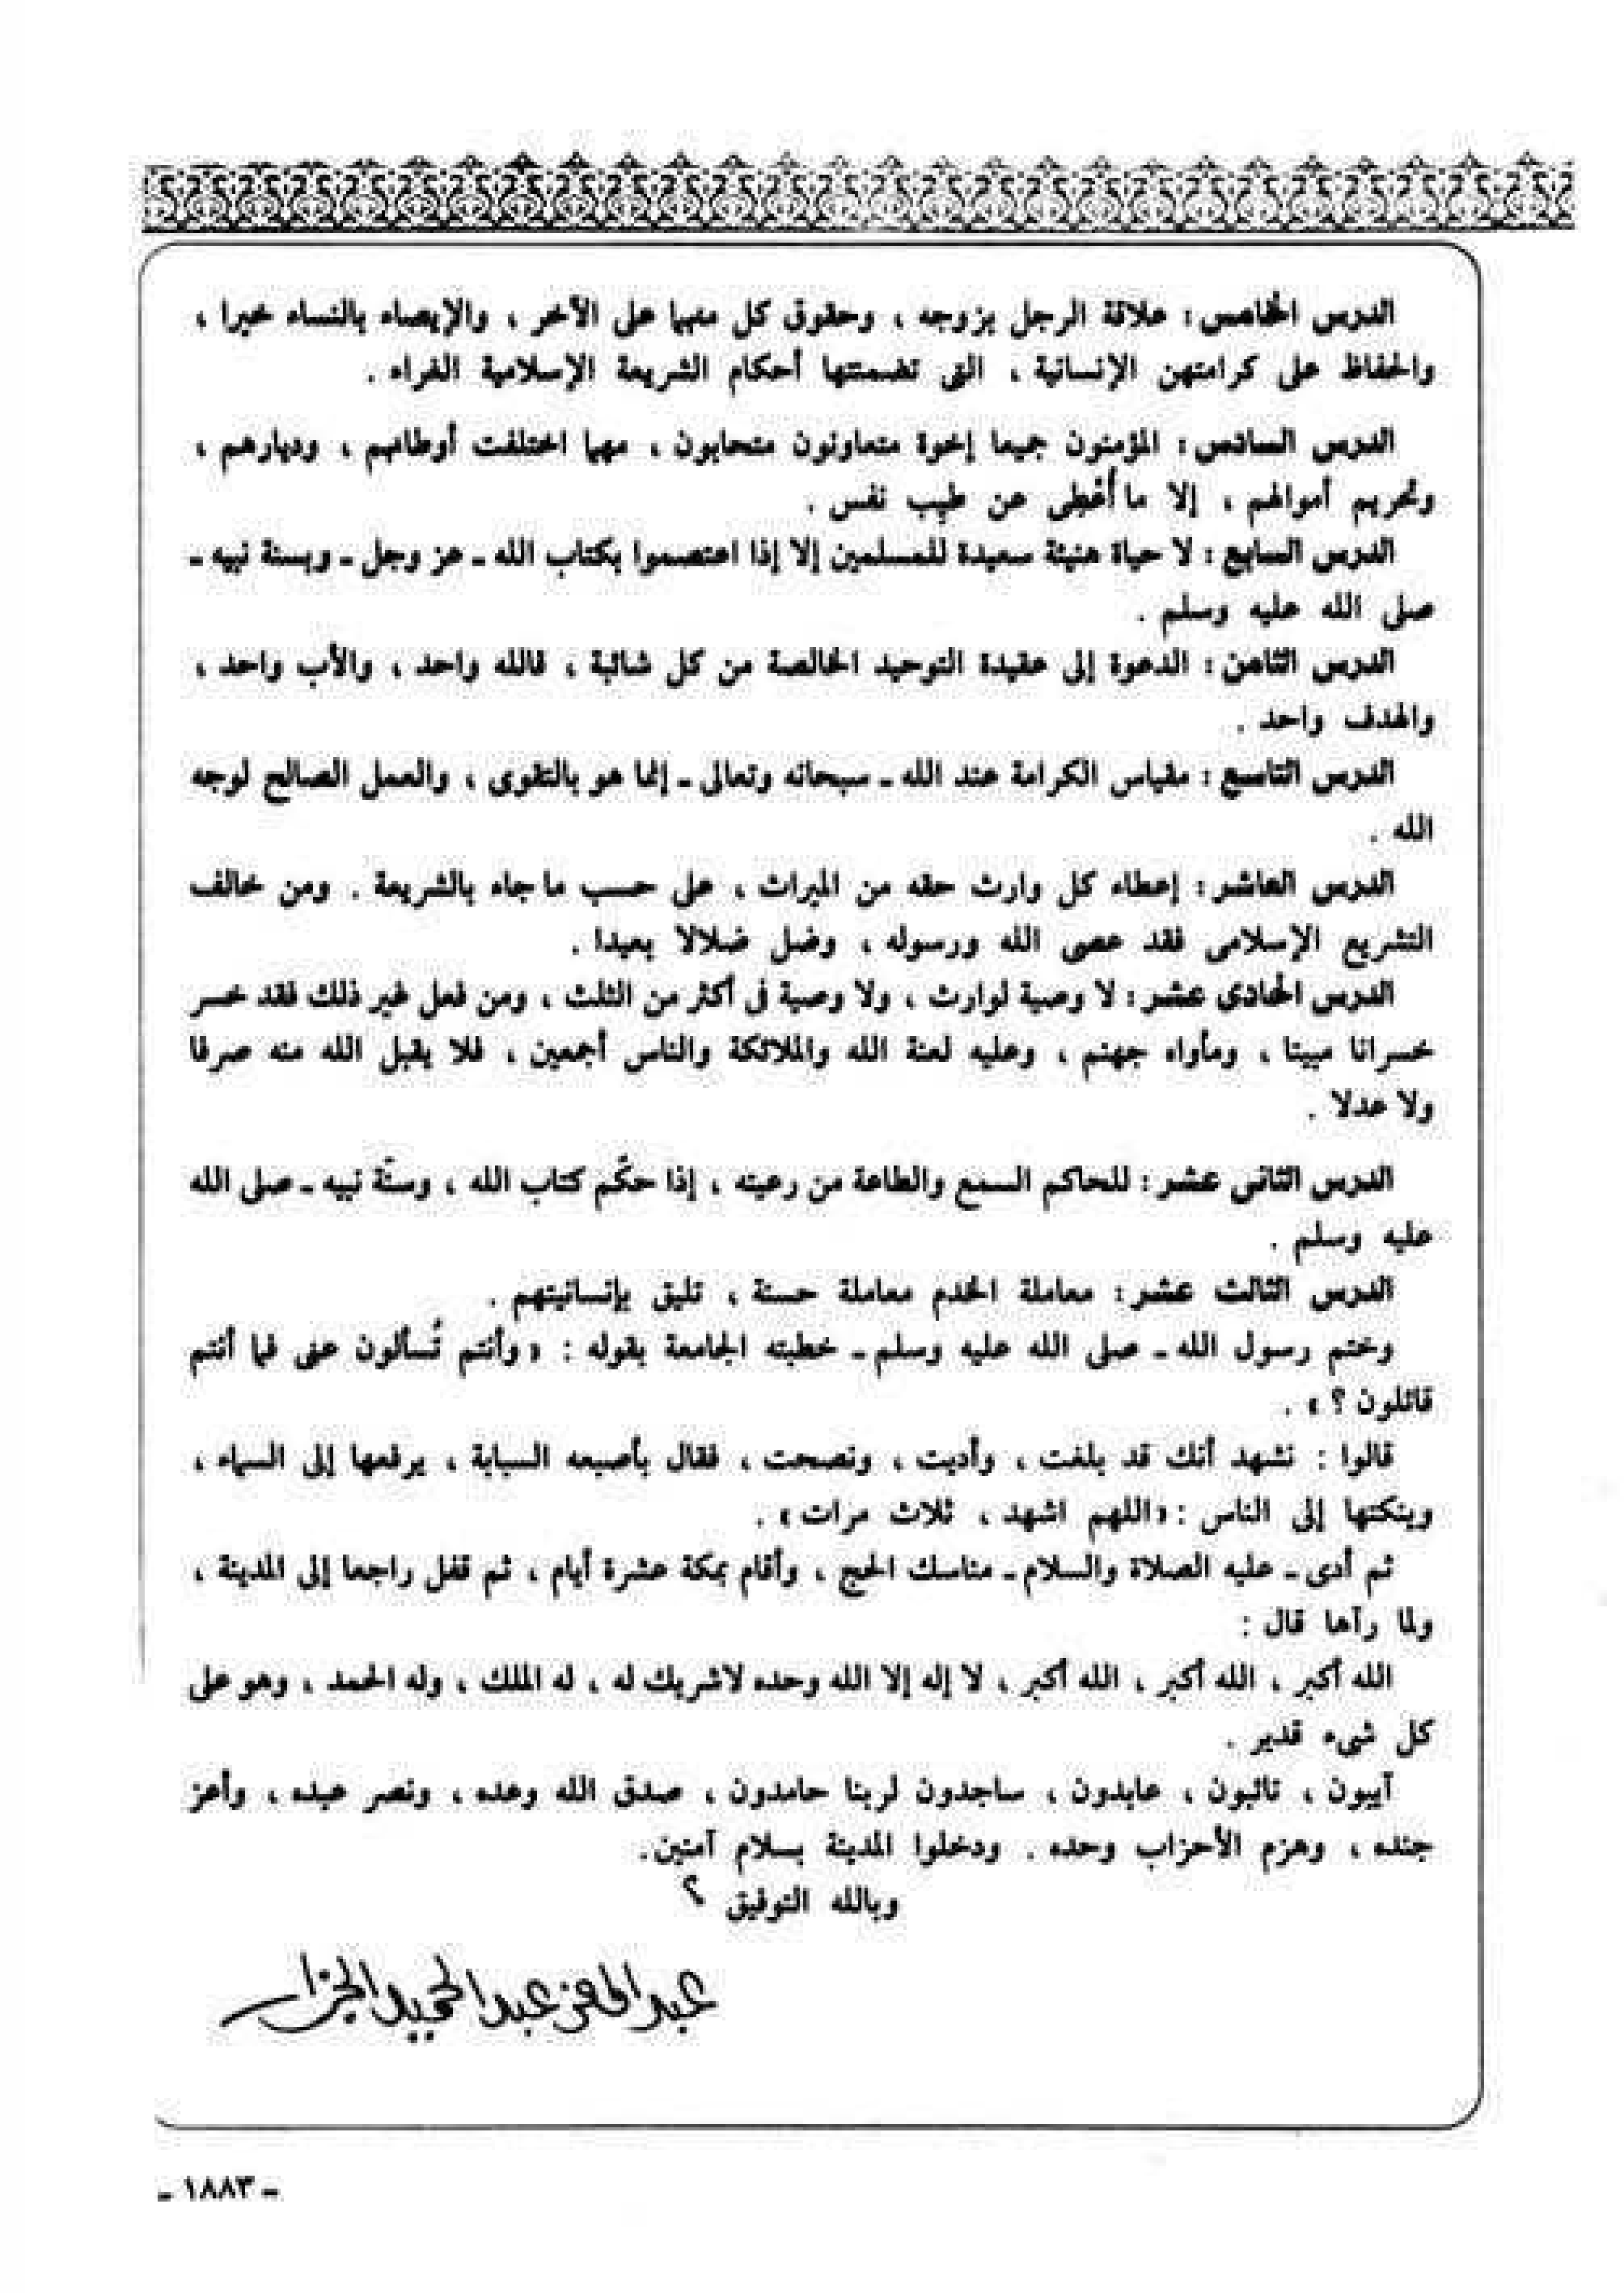 الدرس الخامس : علاقة الرجل بزوجه ، وحقوق كل منهما على الآخر ، والإيصاء بالنساء خيرا ،
والحفاظ على كرامتهن الإنسانية ، التى تضمنتها أحكام الشريعة الإسلامية الغراء .
الدرس السادس : المؤمنون جميعا إخوة متعاونون متحابون ، مهما اختلفت أوطانهم ، وديارهم ،
وتحريم أموالهم ، إلا ما أُعْطِى عن طيب نفس .
الدرس السابع : لا حياة هنيئة سعيدة للمسلمين إلا إذا اعتصموا بكتاب الله ـ عز وجل ـ وبسنة نبيه ـ
صلى الله عليه وسلم .
الدرس الثامن : الدعوة إلى عقيدة التوحيد الخالصة من كل شائبة ، فالله واحد ، والأب واحد ،
والهدف واحد .
الدرس التاسع : مقياس الكرامة عند الله ـ سبحانه وتعالى ـ إنما هو بالتقوى ، والعمل الصالح لوجه
الله .
الدرس العاشر : إعطاء كل وارث حقه من الميراث ، على حسب ما جاء بالشريعة . ومن خالف
التشريع الإسلامى فقد عصى الله ورسوله ، وضل ضلالا بعيدا .
الدرس الحادى عشر : لا وصية لوارث ، ولا وصية فى أكثر من الثلث ، ومن فعل غير ذلك فقد خسر
خسرانا مبينا ، ومأواه جهنم ، وعليه لعنة الله والملائكة والناس أجمعين ، فلا يقبل الله منه صرفا
ولا عدلا .
الدرس الثانى عشر : للحاكم السمع والطاعة من رعيته ، إذا حكّم كتاب الله ، وسنّة نبيه ـ صلى الله
عليه وسلم .
الدرس الثالث عشر : معاملة الخدم معاملة حسنة ، تليق بإنسانيتهم .
وختم رسول الله ـ صلى الله عليه وسلم ـ خطبته الجامعة بقوله : « وأنتم تُسألون عنى فما أنتم
قائلون ؟ » .
قالوا : نشهد أنك قد بلغت ، وأديت ، ونصحت ، فقال بأصبعه السبابة ، يرفعها إلى السماء ،
وينكتها إلى الناس : « اللهم اشهد ، ثلاث مرات » .
ثم أدى ـ عليه الصلاة والسلام ـ مناسك الحج ، وأقام بمكة عشرة أيام ، ثم قفل راجعا إلى المدينة ،
ولما رآها قال :
الله أكبر ، الله أكبر ، الله أكبر ، لا إله إلا الله وحده لاشريك له ، له الملك ، وله الحمد ، وهو على
كل شىء قدير .
آيبون ، تائبون ، عابدون ، ساجدون لربنا حامدون ، صدق الله وعده ، ونصر عبده ، وأعز
جنده ، وهزم الأحزاب وحده . ودخلوا المدينة بسلام آمنين .
وبالله التوفيق
عبد الحفيظ عبد الحميد الجزار
ـ ١٨٨٣ ـ